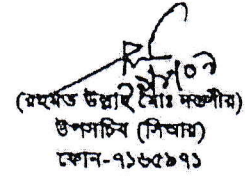 (রহমত উল্লাহ মোঃ দস্তগীর)
উপসচিব (সিআর)
ফোন-৭১৬৫৯৭১